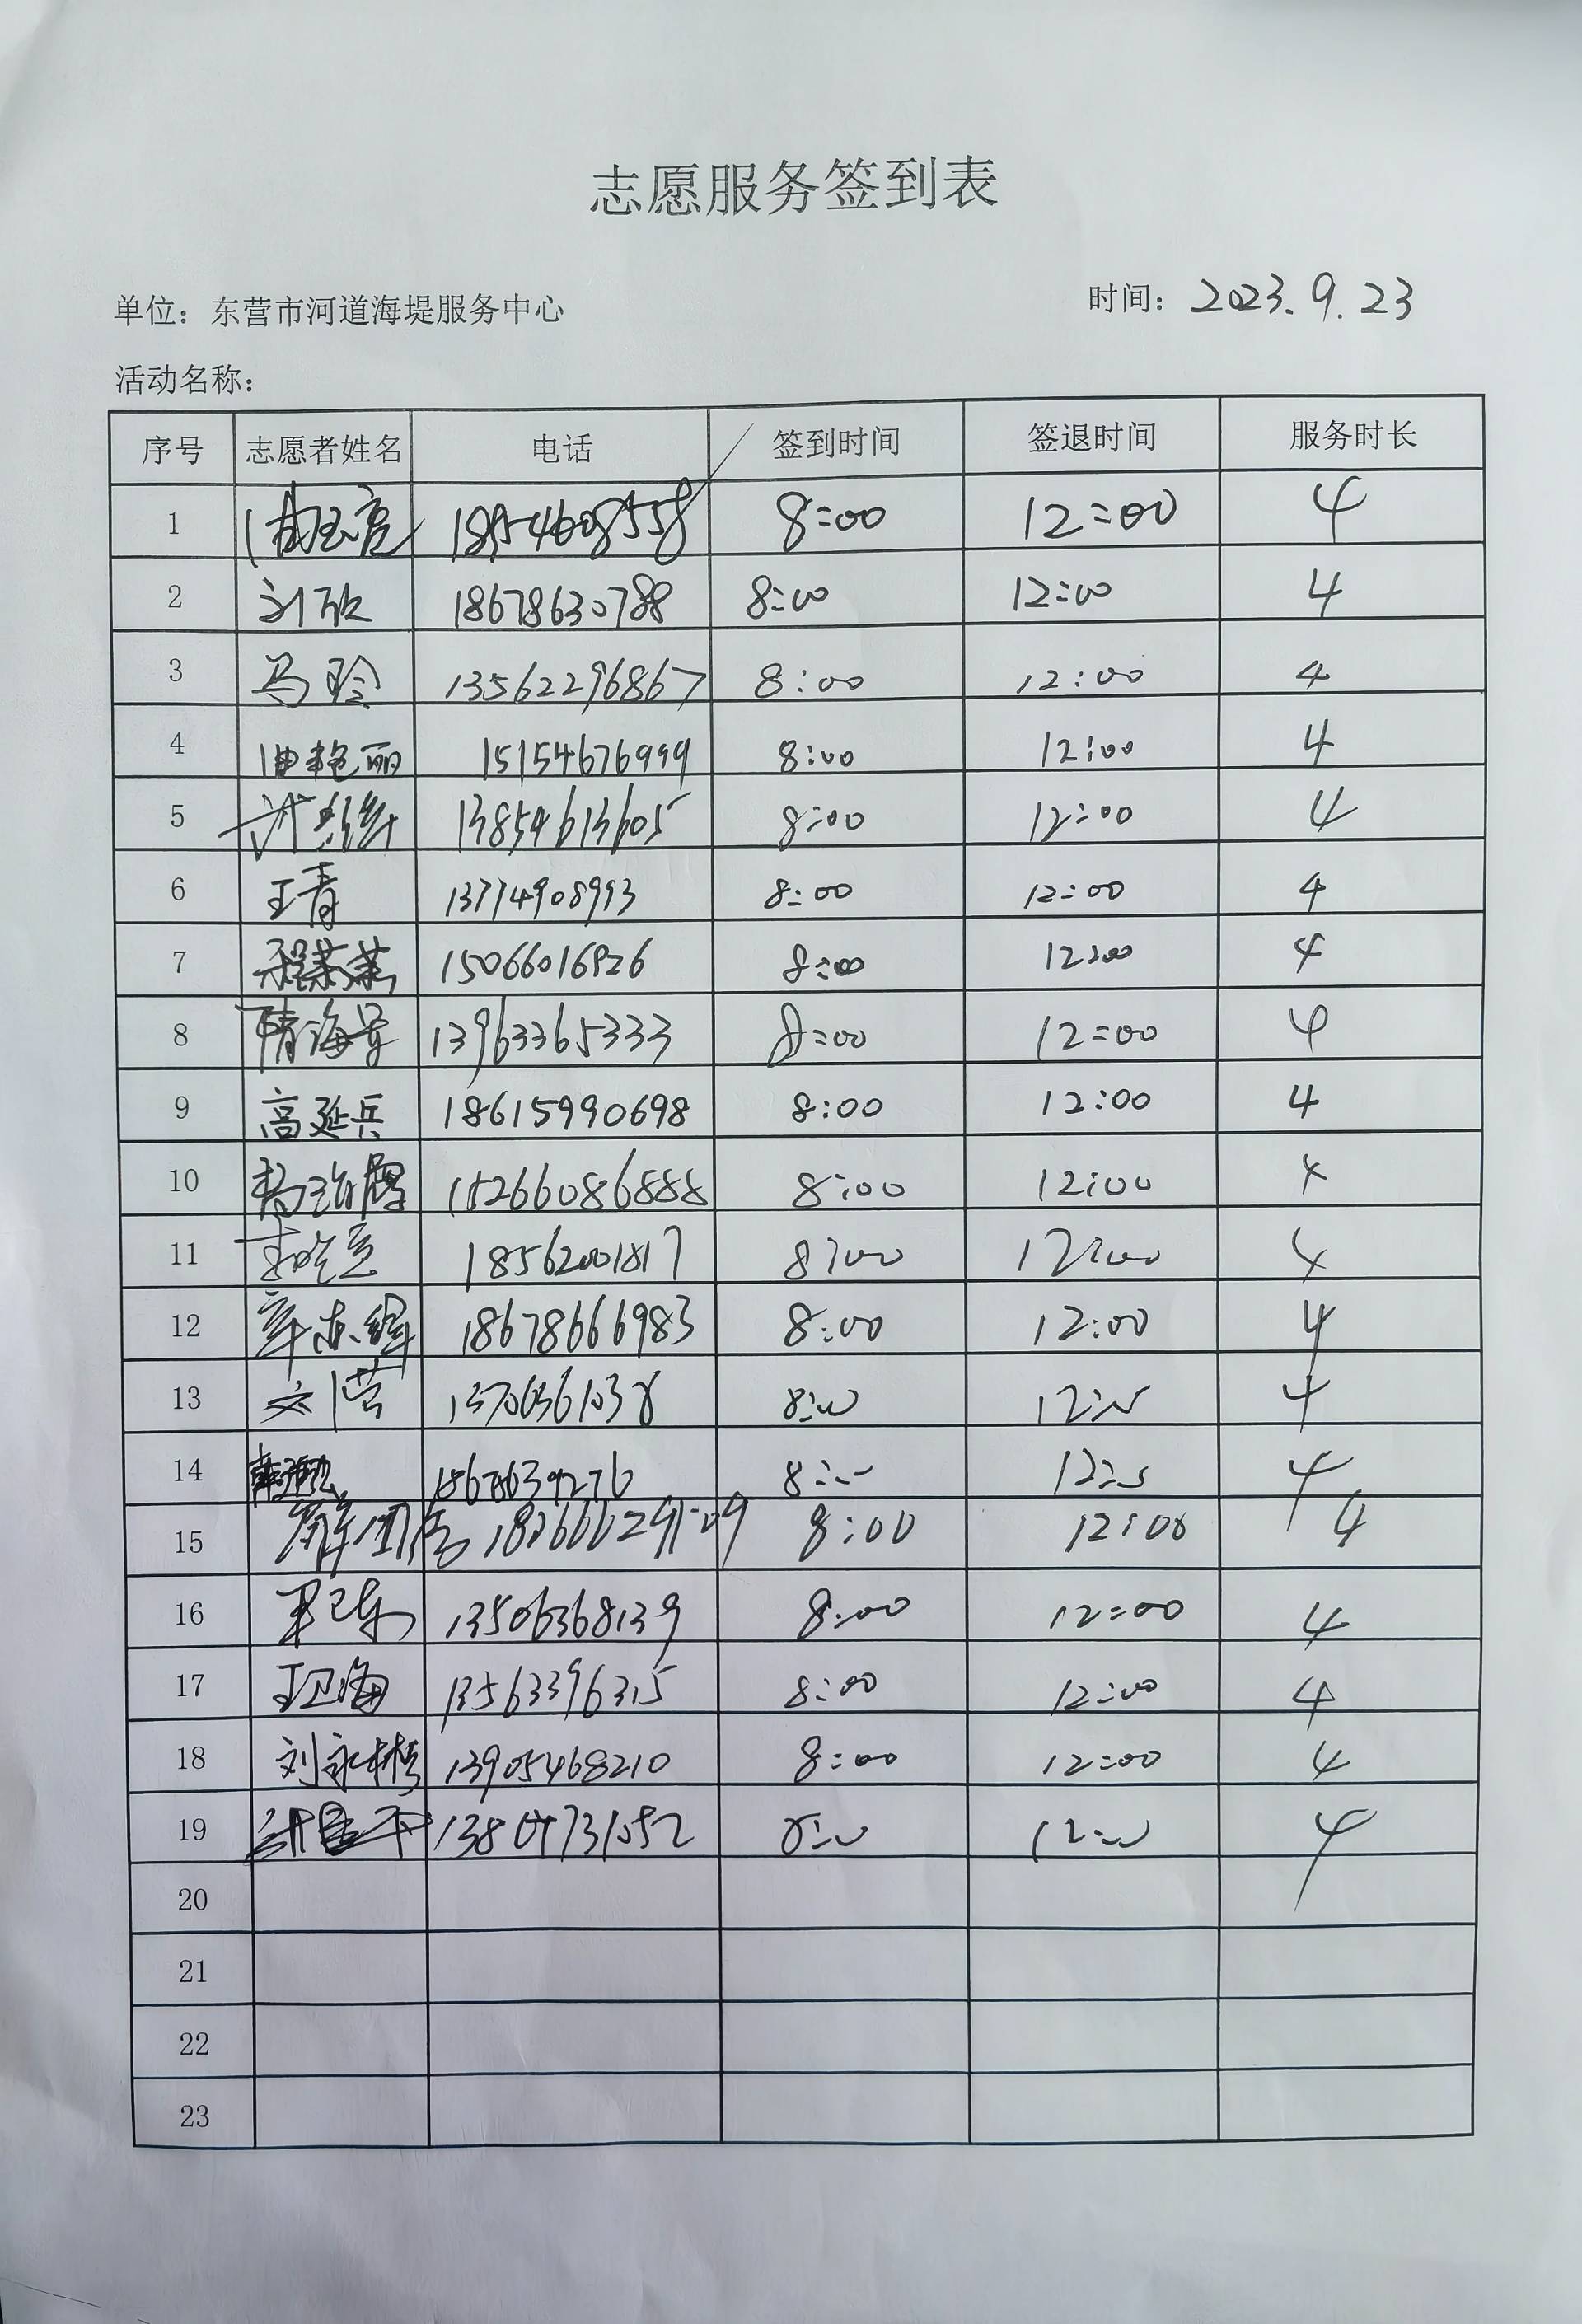 志愿服务签到表
单位：东营市河道海堤服务中心 时间：2023.9.23
活动名称：
序号 志愿者姓名 电话 签到时间 签退时间 服务时长
1 18954608558 8:00 12:00 4
2 刘欣 18678630788 8:00 12:00 4
3 马玲 13562296867 8:00 12:00 4
4 由艳丽 15154676999 8:00 12:00 4
5 13854613605 8:00 12:00 4
6 王青 8:00 12:00 4
7 程荣荣 15066016826 8:00 12:00 4
8 隋海号 13963365333 8:00 12:00 4
9 高延兵 18615990698 8:00 12:00 4
10 杨治辉 15266086888 8:00 12:00 4
11 18562001817 8:00 12:00 4
12 18678666983 8:00 12:00 4
13 刘营 8:00 12:00 4
14 18678639276 8:00 12:00 4
15 8:00 12:00 4
16 13506368139 8:00 12:00 4
17 王卫海 13563396315 8:00 12:00 4
18 刘永彬 13905468210 8:00 12:00 4
19 8:00 12:00 4
20
21
22
23